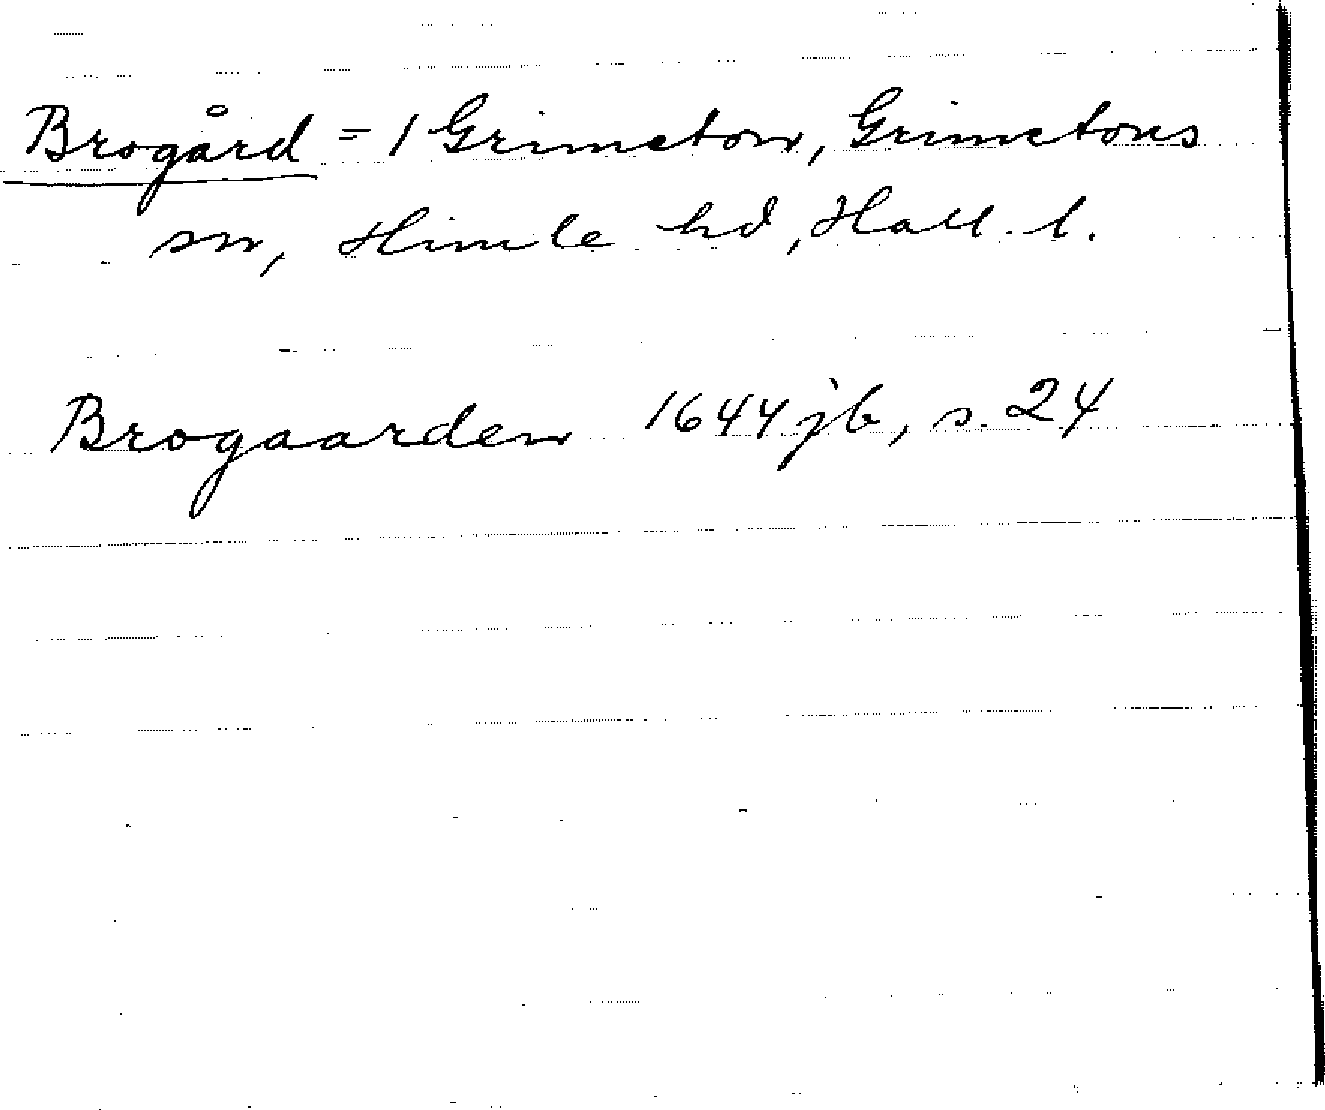 Brogård = 1 Grimeton, Grimetons
sn, Himle hd, Hall. l.
Brogaarden 1644 jb, s. 24